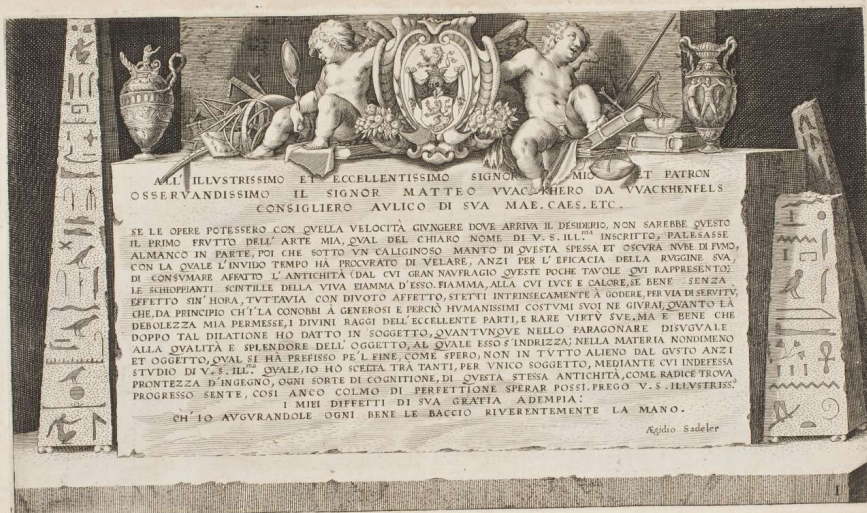 ALL' ILLVSTRISSIMO ET ECCELLENTISSIMO SIGNOR MIO ET PATRON
OSSERVANDISSIMO IL SIGNOR MATTEO VVACKHERO DA VVACKHENFELS
CONSIGLIERO AVLICO DI SVA MAE. CAES. ETC.
SE LE OPERE POTESSERO CON QVELLA VELOCITÀ GIVNGERE DOVE ARRIVA IL DESIDERIO, NON SAREBBE QVESTO
IL PRIMO FRVTTO DELL' ARTE MIA, QVAL DEL CHIARO NOME DI V. S. ILL.ma INSCRITTO, PALESASSE
ALMANCO IN PARTE, POI CHE SOTTO VN CALIGINOSO MANTO DI QVESTA SPESSA ET OSCVRA NVBE DI FVMO,
CON LA QVALE L'INVIDO TEMPO HÀ PROCVRATO DI VELARE, ANZI PER L'EFICACIA DELLA RVGGINE SVA,
DI CONSVMARE AFFATTO L'ANTICHITÀ (DAL CVI GRAN NAVFRAGIO QVESTE POCHE TAVOLE QVI RAPPRESENTO)
LE SCHIOPPIANTI SCINTILLE DELLA VIVA FIAMMA D'ESSO. FIAMMA, ALLA CVI LVCE E CALORE, SE BENE SENZA
EFFETTO SIN' HORA, TVTTAVIA CON DIVOTO AFFETTO, STETTI INTRINSECAMENTE À GODERE, PER VIA DI SERVITV,
CHE, DA PRINCIPIO CH'I'LA CONOBBI À GENEROSI E PERCIÒ HVMANISSIMI COSTVMI SVOI NE GIVRAI, QVANTO LA
DEBOLEZZA MIA PERMESSE, I DIVINI RAGGI DELL'ECCELLENTE PARTI, E RARE VIRTÙ SVE. MA E BENE CHE
DOPPO TAL DILATIONE HO DATTO IN SOGGETTO, QVANTVNQVE NELLO PARAGONARE DISVGVALE
ALLA QVALITÀ E SPLENDORE DELL' OGGETTO, AL QVALE ESSO S'INDRIZZA; NELLA MATERIA NONDIMENO
ET OGGETTO, QVAL SI HÀ PREFISSO PE'L FINE, COME SPERO, NON IN TVTTO ALIENO DAL GVSTO ANZI
STVDIO DI V. S. ILL.ma QVALE, IO HÒ SCELTA TRÀ TANTI, PER VNICO SOGGETTO, MEDIANTE CVI INDEFESSA
PRONTEZZA D'INGEGNO, OGNI SORTE DI COGNITIONE, DI QVESTA STESSA ANTICHITÀ, COME RADICE TROVA
PROGRESSO SENTE, COSI ANCO COLMO DI PERFETTIONE SPERAR POSSI. PREGO V. S. ILLVSTRISS.a
I MIEI DIFFETTI DI SVA GRATIA ADEMPIA:
CH'IO AVGVRANDOLE OGNI BENE LE BACCIO RIVERENTEMENTE LA MANO.
Ægidio Sadeler
1